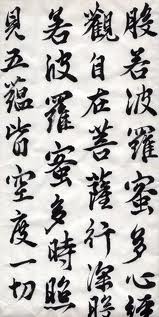 般若波羅蜜多心經
觀自在菩薩行深般
若波羅蜜多時照
見五蘊皆空度一切